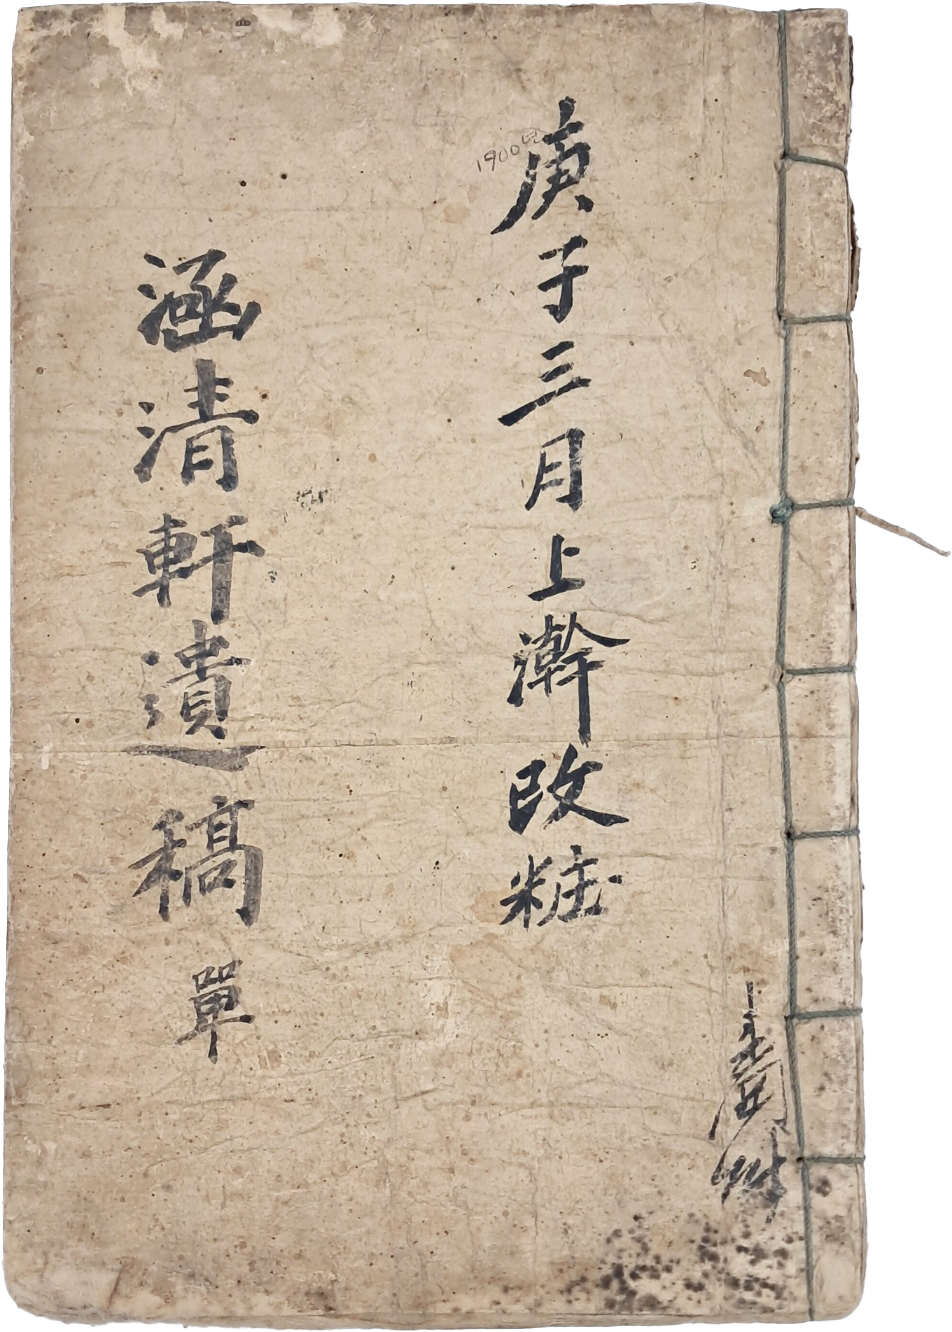 庚子三月上澣改粧
1900년
涵清軒遺稿 單